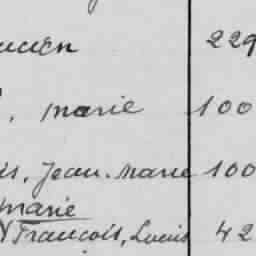 229
, marie 100
is, Jean. Marie 100
marie
François, Louis 42